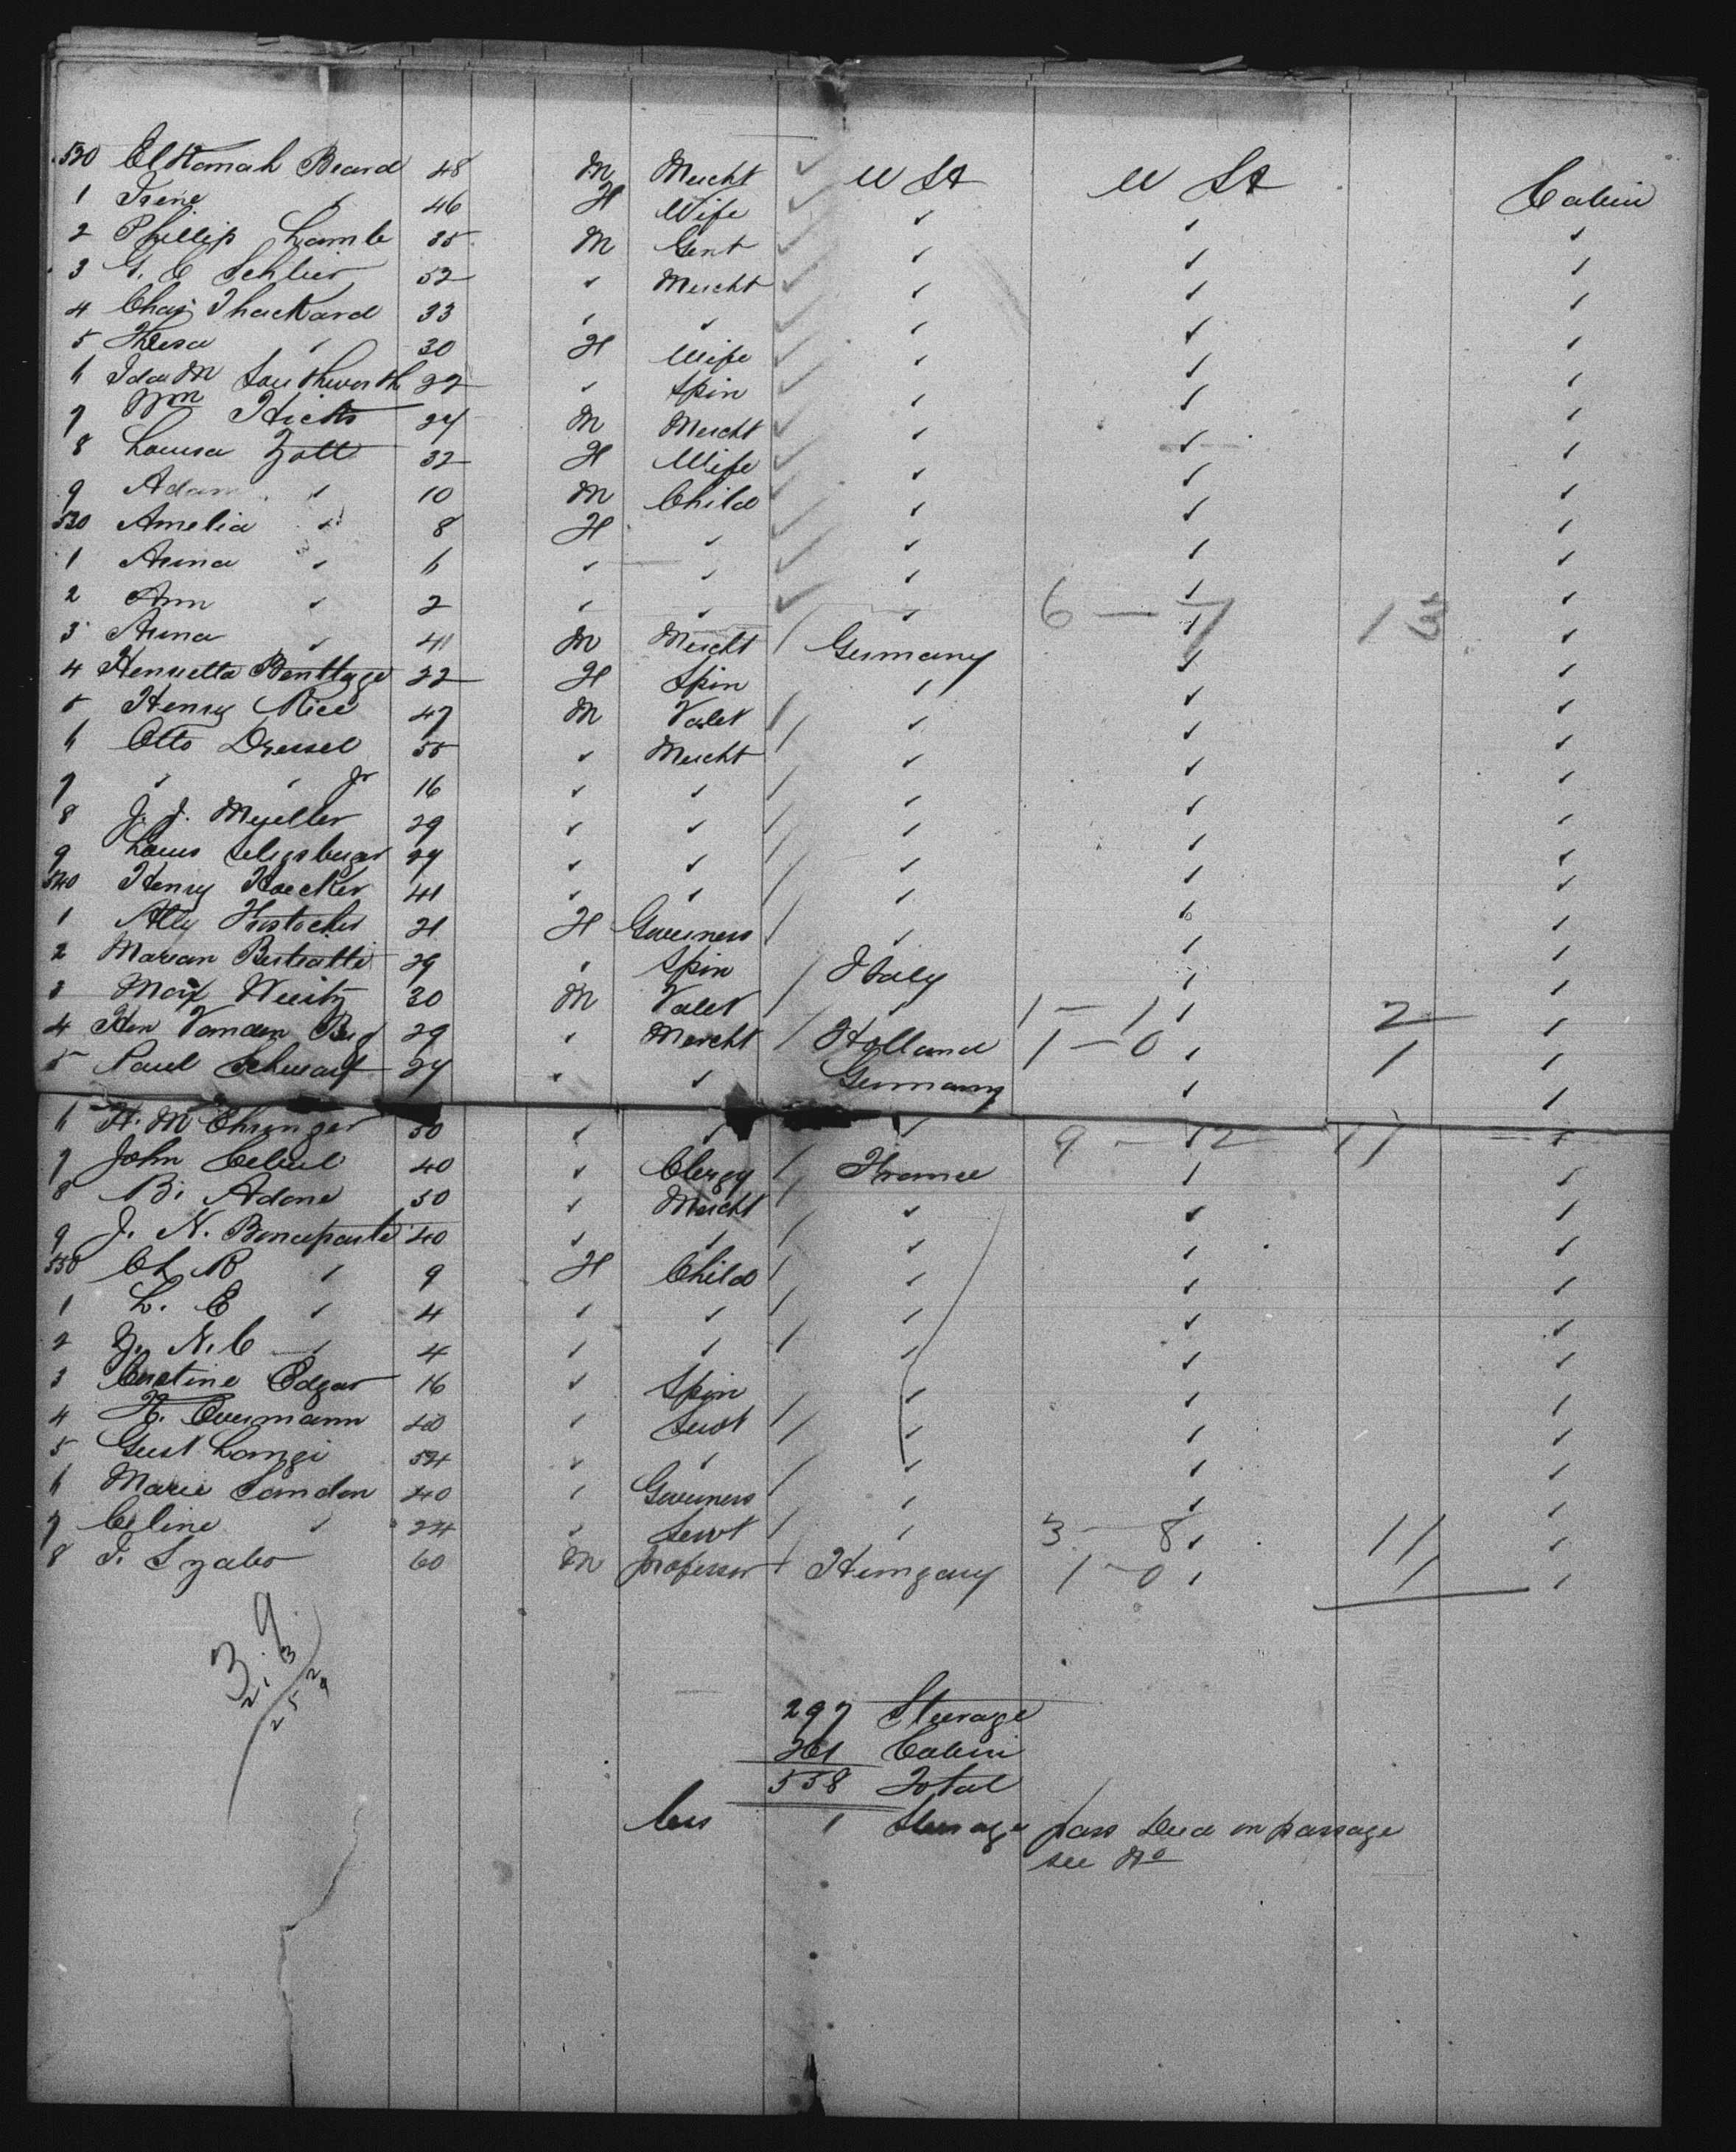 520 Elkanah Beard 48 M Mercht ✓ U St U St Cabin
1 Irene ✓ 46 F Wife ✓ ✓ ✓ ✓
2 Phillip Lamb 35 M Gent ✓ ✓ ✓ ✓
3 G. C Schlier 52 ✓ Mercht ✓ ✓ ✓ ✓
4 Chas Thackard 33 ✓ ✓ ✓ ✓ ✓ ✓
5 ✓ 30 F Wife ✓ ✓ ✓ ✓
6 Ida M Southworth 22 ✓ Spin ✓ ✓ ✓ ✓
7 Wm Hicks 24 M Mercht ✓ ✓ ✓ ✓
8 Louisa Zoll 32 F Wife ✓ ✓ ✓ ✓
9 Adam ✓ 10 M Child ✓ ✓ ✓ ✓
530 Amelia ✓ 8 F ✓ ✓ ✓ ✓ ✓
1 Anna ✓ 6 ✓ ✓ ✓ ✓ ✓ ✓
2 Ann ✓ 2 ✓ ✓ ✓ ✓ 6 — 7 ✓ 13 ✓
3 Anna ✓ 41 M Mercht / Germany ✓ ✓
4 Henrietta 22 F Spin ✓ ✓ ✓
5 Henry Rice 47 M Valet / ✓ ✓ ✓
6 Otto Dressel 55 ✓ Mercht / ✓ ✓ ✓
7 ✓ ✓ Jr 16 ✓ ✓ / ✓ ✓ ✓
8 J. J. Mueller 29 ✓ ✓ / ✓ ✓ ✓
9 Louis Seligsberger 29 ✓ ✓ / ✓ ✓ ✓
540 Henry Hoecker 41 ✓ ✓ / ✓ ✓ ✓
1 Ally 21 F Governess / ✓ ✓ ✓
2 Marian 29 ✓ Spin / Italy ✓ ✓
3 Max 30 M Valet / ✓ 1 — 1 ✓ 2 ✓
4 Hen Vanden Berg 29 ✓ Mercht / Holland 1 — 0 ✓ 1 ✓
5 Paul 24 ✓ ✓ Germany ✓ ✓
6 H. M 50 ✓ ✓ ✓ 9 — 12 ✓
7 John 40 ✓ Clergy / France ✓ ✓
8 B. Adone 50 ✓ Mercht / ✓ ✓ ✓
9 J. N. Bonaparte 40 ✓ ✓ / ✓ ✓ ✓
550 Ch R ✓ 9 F Child / ✓ ✓ ✓
1 L. E ✓ 4 ✓ ✓ / ✓ ✓ ✓
2 J. N. C ✓ 4 ✓ ✓ / ✓ ✓ ✓
3 Edgar 16 ✓ Spin ✓ ✓ ✓
4 40 ✓ Servt / ✓ ✓ ✓
5 Gust Langi 54 ✓ ✓ ✓ ✓ ✓
6 Marie Landon 40 ✓ Governess / ✓ ✓ ✓
7 Celine ✓ 24 ✓ Servt / ✓ 3 — 8 ✓ 11 ✓
8 I. Szabo 60 M professor / Hungary 1 — 0 ✓ 1 ✓
3 9
297 Steerage
261 Cabin
558 Total
less 1 Steerage pass Died on passage
see No